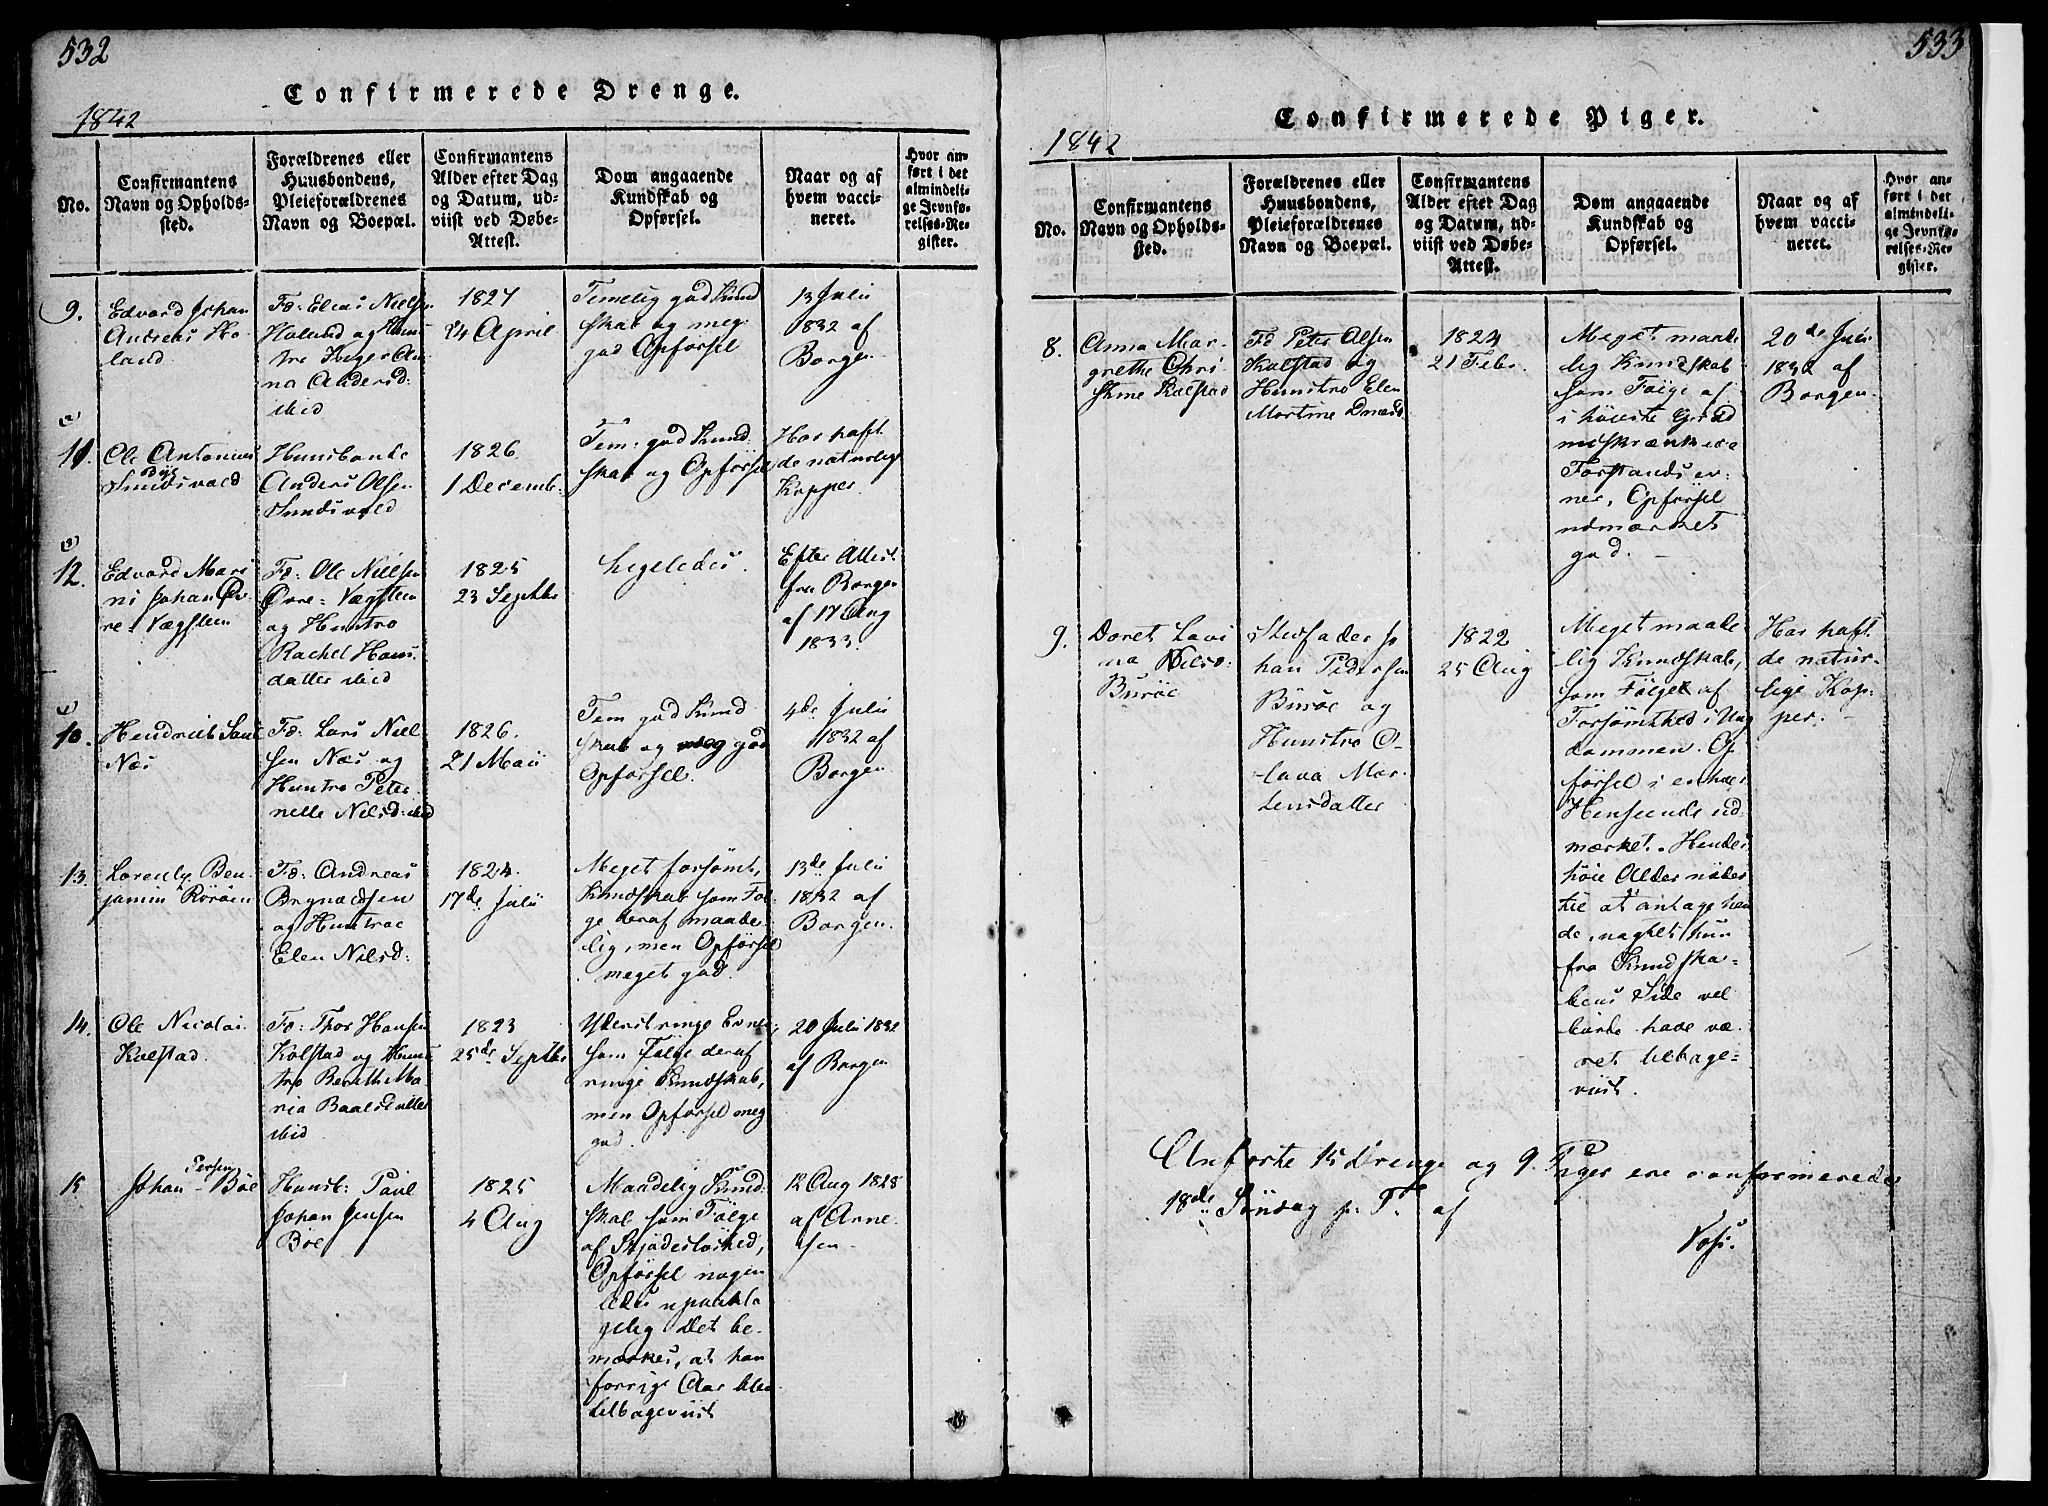 532
Confirmerede Drenge.
1842
No.
Confirmantens
Navn og Opholds-
sted.
Forældrenes eller
Huusbondens,
Pleieforældrenes
Navn og Boepæl.
Confirmantens
Alder efter Dag
og Datum, ud-
viist ved Døbe-
Attest.
Dom angaaende
Kundskab og
Opførsel.
Naar og af
hvem vacci-
neret.
Hvor an-
ført i det
almindeli-
ge Jevnfø-
relses-Re-
gister.
9.
Edvard Johan
Andreas Ho-
land
Fd: Elias Nielsen
Holand og Huus-
tro Inger An-
na Andersd.
ibid
1827
24 April
Temelig god Kund
skab og meg
god Opførsel
13 Julii
1832 af
Borgen
2)
11.
Ole Antonius
Sundsvold
Huusbonde
Anders Olsen
Sundsvold
1826
1 Decemb.
Tem: god Kund-
skab og Opførsel
Har haft
de naturlige
Kopper
3)
12.
Edvard Mari
ni Johan Øv-
re-Vægsteen
Fd: Ole Nielsen
Øvre-Vægsteen
og Huustro
Rachel Hans
datter ibid
1825
23 Septbr
Ligeledes.
Efter Attest
fra Borgen
af 17 Aug
1833.
10.
Hendrich
Næs
Fd: Lars Niel-
sen Næs og
Huustro Peter
nelle Nielsd: ibid
1826.
21 Maii
Tem god Kund
skab og meg god
Opførsel.
4de Julii
1832 af
Borgen
13.
Lorentz Ben-
jamin Rörøen
Fd: Andreas
Brynildsen
og Huustroe
Elen Nielsd:
1824.
17de Julii
Meget forsömt,
Kundskab som Föl-
ge deraf maade-
lig, men Opførsel
meget god.
13de Julii
1832 af
Borgen.
14.
Ole Nicolai
Kolstad.
Fd: Thor Hansen
Kolstad og Huus
tro Berith Ma-
ria Baalsdatter
ibid
1823
25de Septbr
Yderst ringe Evner,
som Fölge deraf
ringe Kundskab,
men Opførsel meg
god.
20 Julii 1832
af Borgen
15
Persen
Johan Böe
Huusb: Paul
Johan Jensen
Böe
1825
4 Aug
Maadelig Kund-
skab som Fölge
af Skjødesløshed,
Opførsel nogen
ledes upaakla
gelig Det be-
mærkes, at han
forrige Aar blev
tilbageviist
12 Aug 1828
af Arne-
sen
533
Confirmerede Piger.
1842
No.
Confirmantens
Navn og Opholds-
sted.
Forældrenes eller
Huusbondens,
Pleieforældrenes
Navn og Boepæl.
Confirmantens
Alder efter Dag
og Datum, ud-
viist ved Døbe-
Attest.
Dom angaaende
Kundskab og
Opførsel.
Naar og af
hvem vacci-
neret.
Hvor an-
ført i det
almindeli-
ge Jevnfø-
relses-Re-
gister.
8.
Anna Mar-
grethe Chri
stine Kolstad
Fd Peter Olsen
Kolstad og
Huustro Elen
Martine
1824
21 Febr.
Meget maade
lig Kundskab
som Følge af
i høieste Grad
indskrænkede
Forstandsev-
ner, Opførsel
udmærket
god.
20de Juli
1832 af
Borgen
9.
Doret Lovi
na Nilsd:
Busöe
Stedfader Jo
han Pedersen
Busöe og
Huustro O-
lava Mor-
tensdatter
1822
25 Aug
Meget maade
lig Kundskab,
som Følge af
Forsømthed i Ung
dommen. Op
førsel i enhver
Henseende ud-
mærket. Hendes
höie Alder nöder
til at antage hen
de, uagtet hun
fra Kundska-
bens Side vel
burde have væ-
ret tilbage-
viist.
Har haft
de natur-
lige Kop-
per.
Anførte 15 Drenge og 9. Piger ere confirmerede
18de Söndag p: Tr. af
Voss.